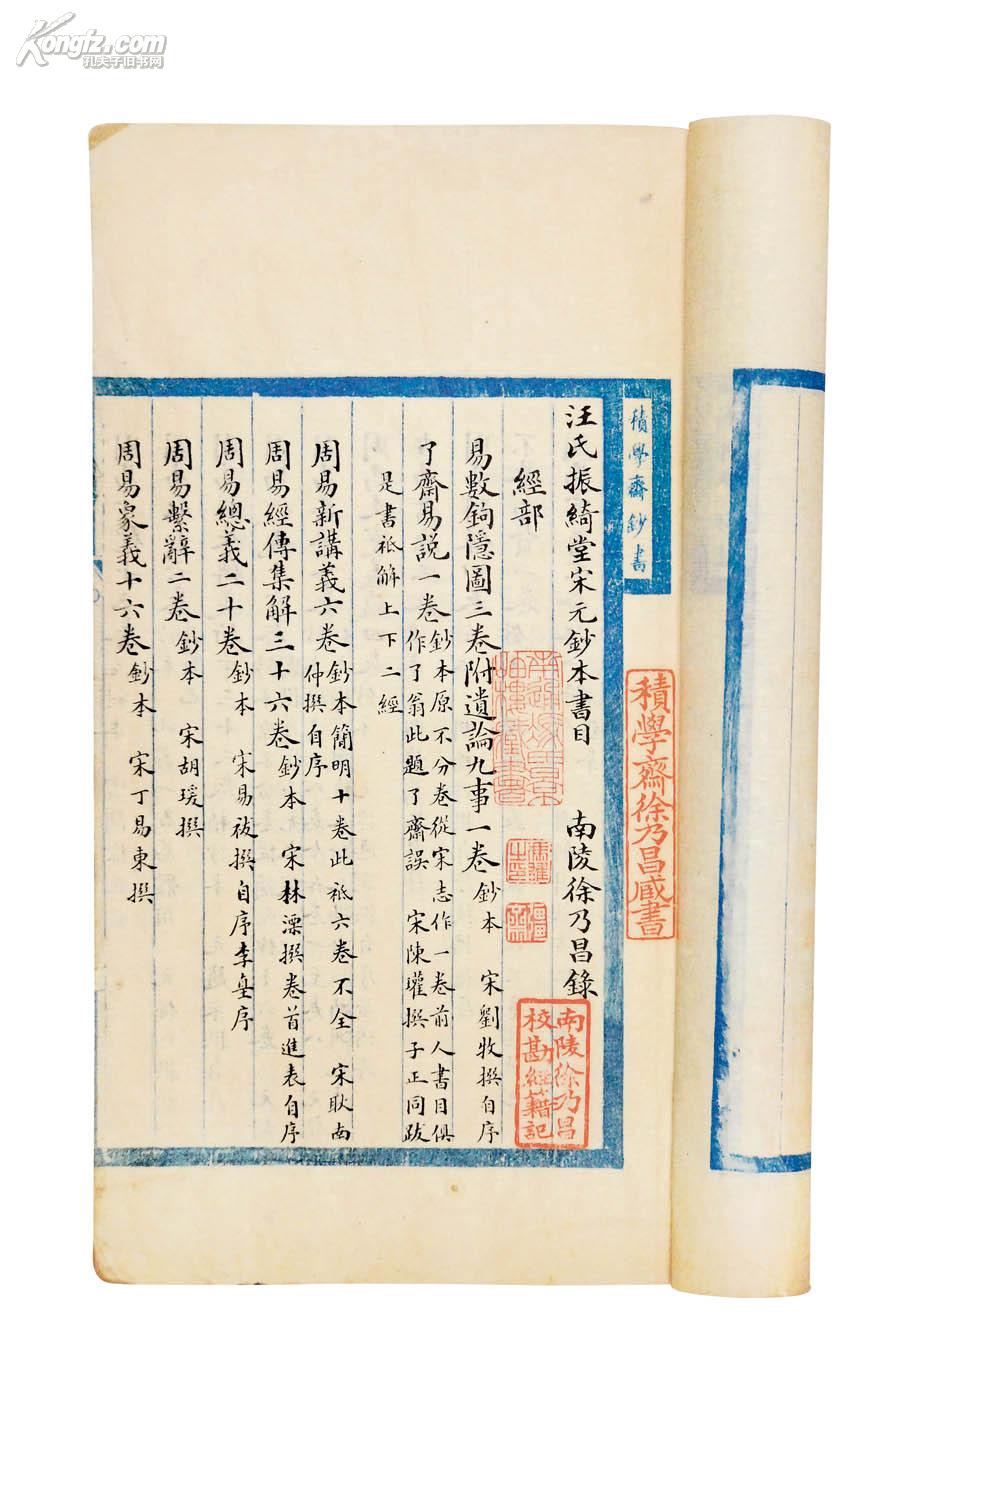 Kongfz.com
孔夫子旧书网
積學齋鈔書
積學齋徐乃昌藏書
汪氏振綺堂宋元鈔本書目　南陵徐乃昌錄
南陵徐乃昌
校勘經籍記
經部
易數鉤隱圖三卷附遺論九事一卷鈔本　宋劉牧撰自序
了齋易説一卷鈔本原不分卷從宋志作一卷前人書目俱
作了翁此題了齋誤　宋陳瓘撰子正同跋
是書祗解上下二經
周易新講義六卷鈔本簡明十卷此祗六卷不全　宋耿南
仲撰自序
周易經傳集解三十六卷鈔本　宋林㵾撰卷首進表自序
周易總義二十卷鈔本　宋易祓撰自序李壆序
周易繫辭二卷鈔本　宋胡瑗撰
周易象義十六卷鈔本　宋丁易東撰